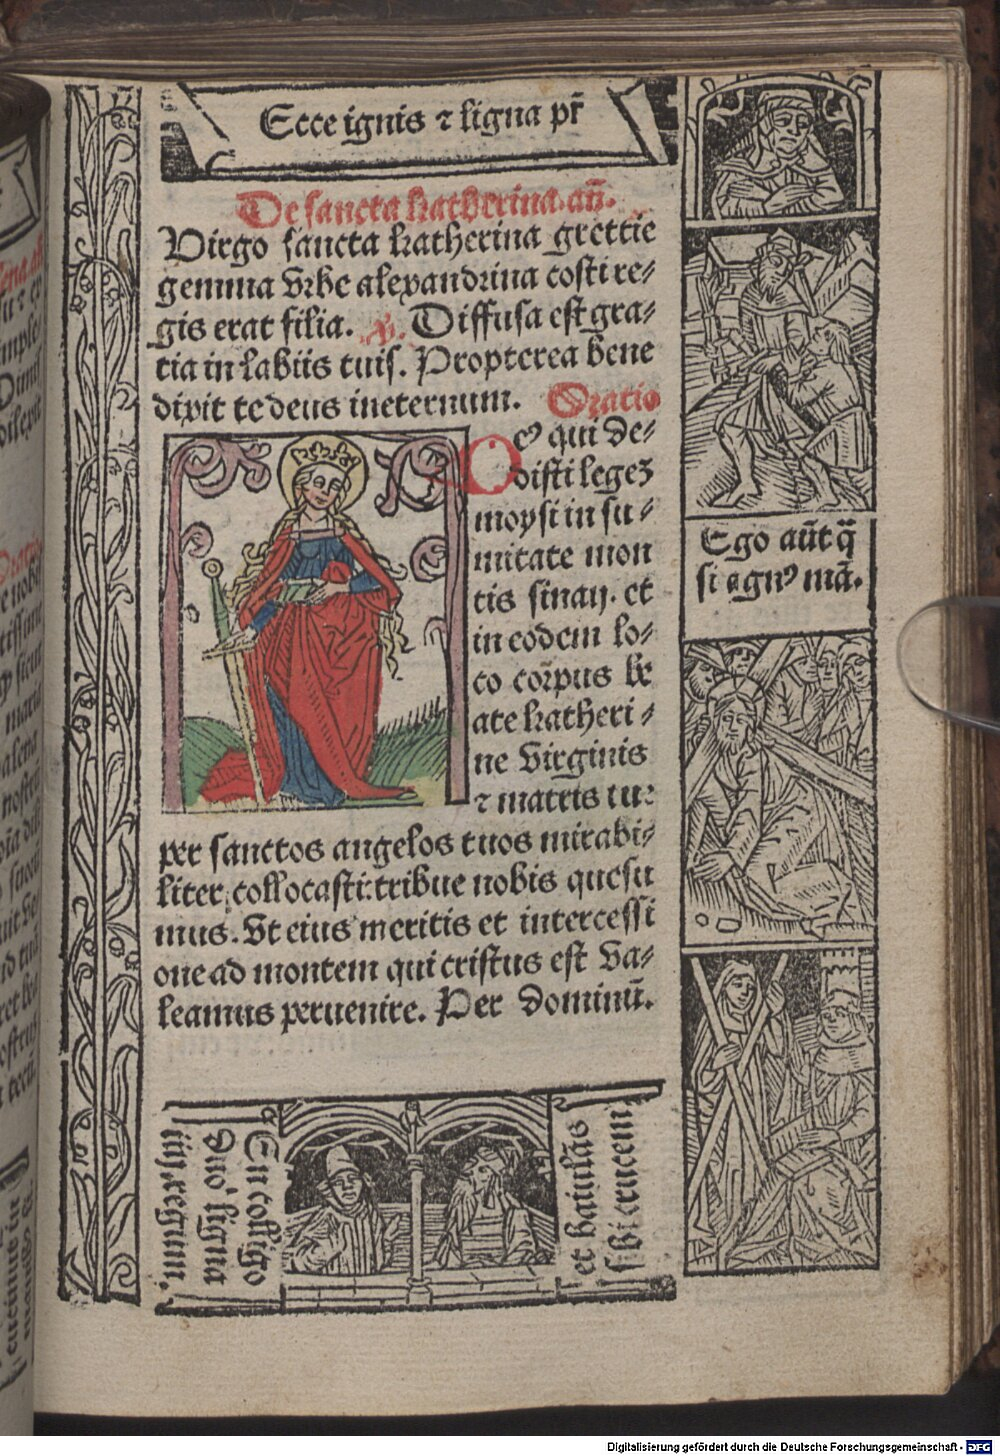 Ecce ignis ⁊ ligna pr̄
De sancta katherina. an̄.
Virgo sancta katherina grettie
gemma Vrbe alexandrina costi re⸗
gis erat filia. ℣. Diffusa est gra⸗
tia in labiis tuis. Propterea bene
dixit te deus ineternum. Oratio
Deꝰ qui de⸗
disti legeꝫ
moysi in su⸗
mitate mon
tis sinay. et
in eodem lo⸗
co corpus be
ate katheri⸗
ne Virginis
⁊ matris tue
per sanctos angelos tuos mirabi⸗
liter collocasti: tribue nobis quesu
mus. Vt eius meritis et intercessi
one ad montem qui cristus est Va⸗
leamus peruenire. Per dominū.
Ego aūt q̄
si agnꝰ mā.
En colligo
Duo ligna
iii. regum.
et baiulās
s. bi crucem
Digitalisierung gefördert durch die Deutsche Forschungsgemeinschaft - DFG